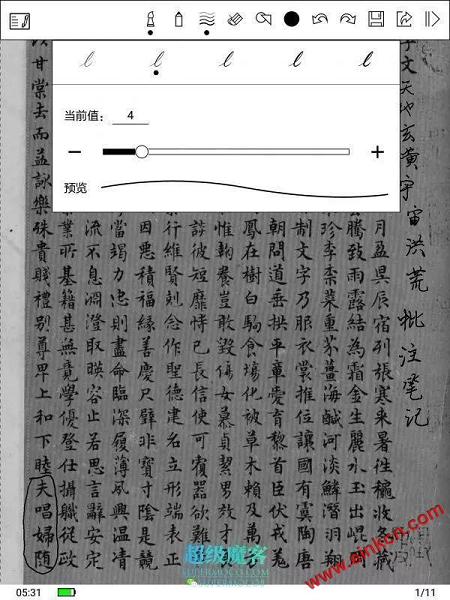 当前值: 4
预览
文
天地玄黄宇宙洪荒 批注笔记
月盈昃辰宿列張寒来暑往穐收冬藏
騰致雨露結為霜金生麗水玉出崑
珍李柰菜重芥薑海鹹河淡鱗潛羽翔
制文字乃服衣裳推位讓國有虞陶唐
朝問道垂拱平章愛育黎首臣伏戎羌
鳳在樹白駒食場化被草木賴及萬
惟鞠養豈敢毀傷女慕貞絜男效才
談彼短靡恃己長信使可覆器欲難
行維賢剋念作聖德建名立形端表正
因惡積福緣善慶尺璧非寶寸陰是競
當竭力忠則盡命臨深履薄夙興温凊
流不息淵澄取暎容止若思言辭安定
業所基籍甚無竟學優登仕攝職從政
以甘棠去而益詠樂殊貴賤禮別尊卑上和下睦夫唱婦随
超级魔客
SUPERMOCO.COM
www.einkcn.com
05:31
1/11